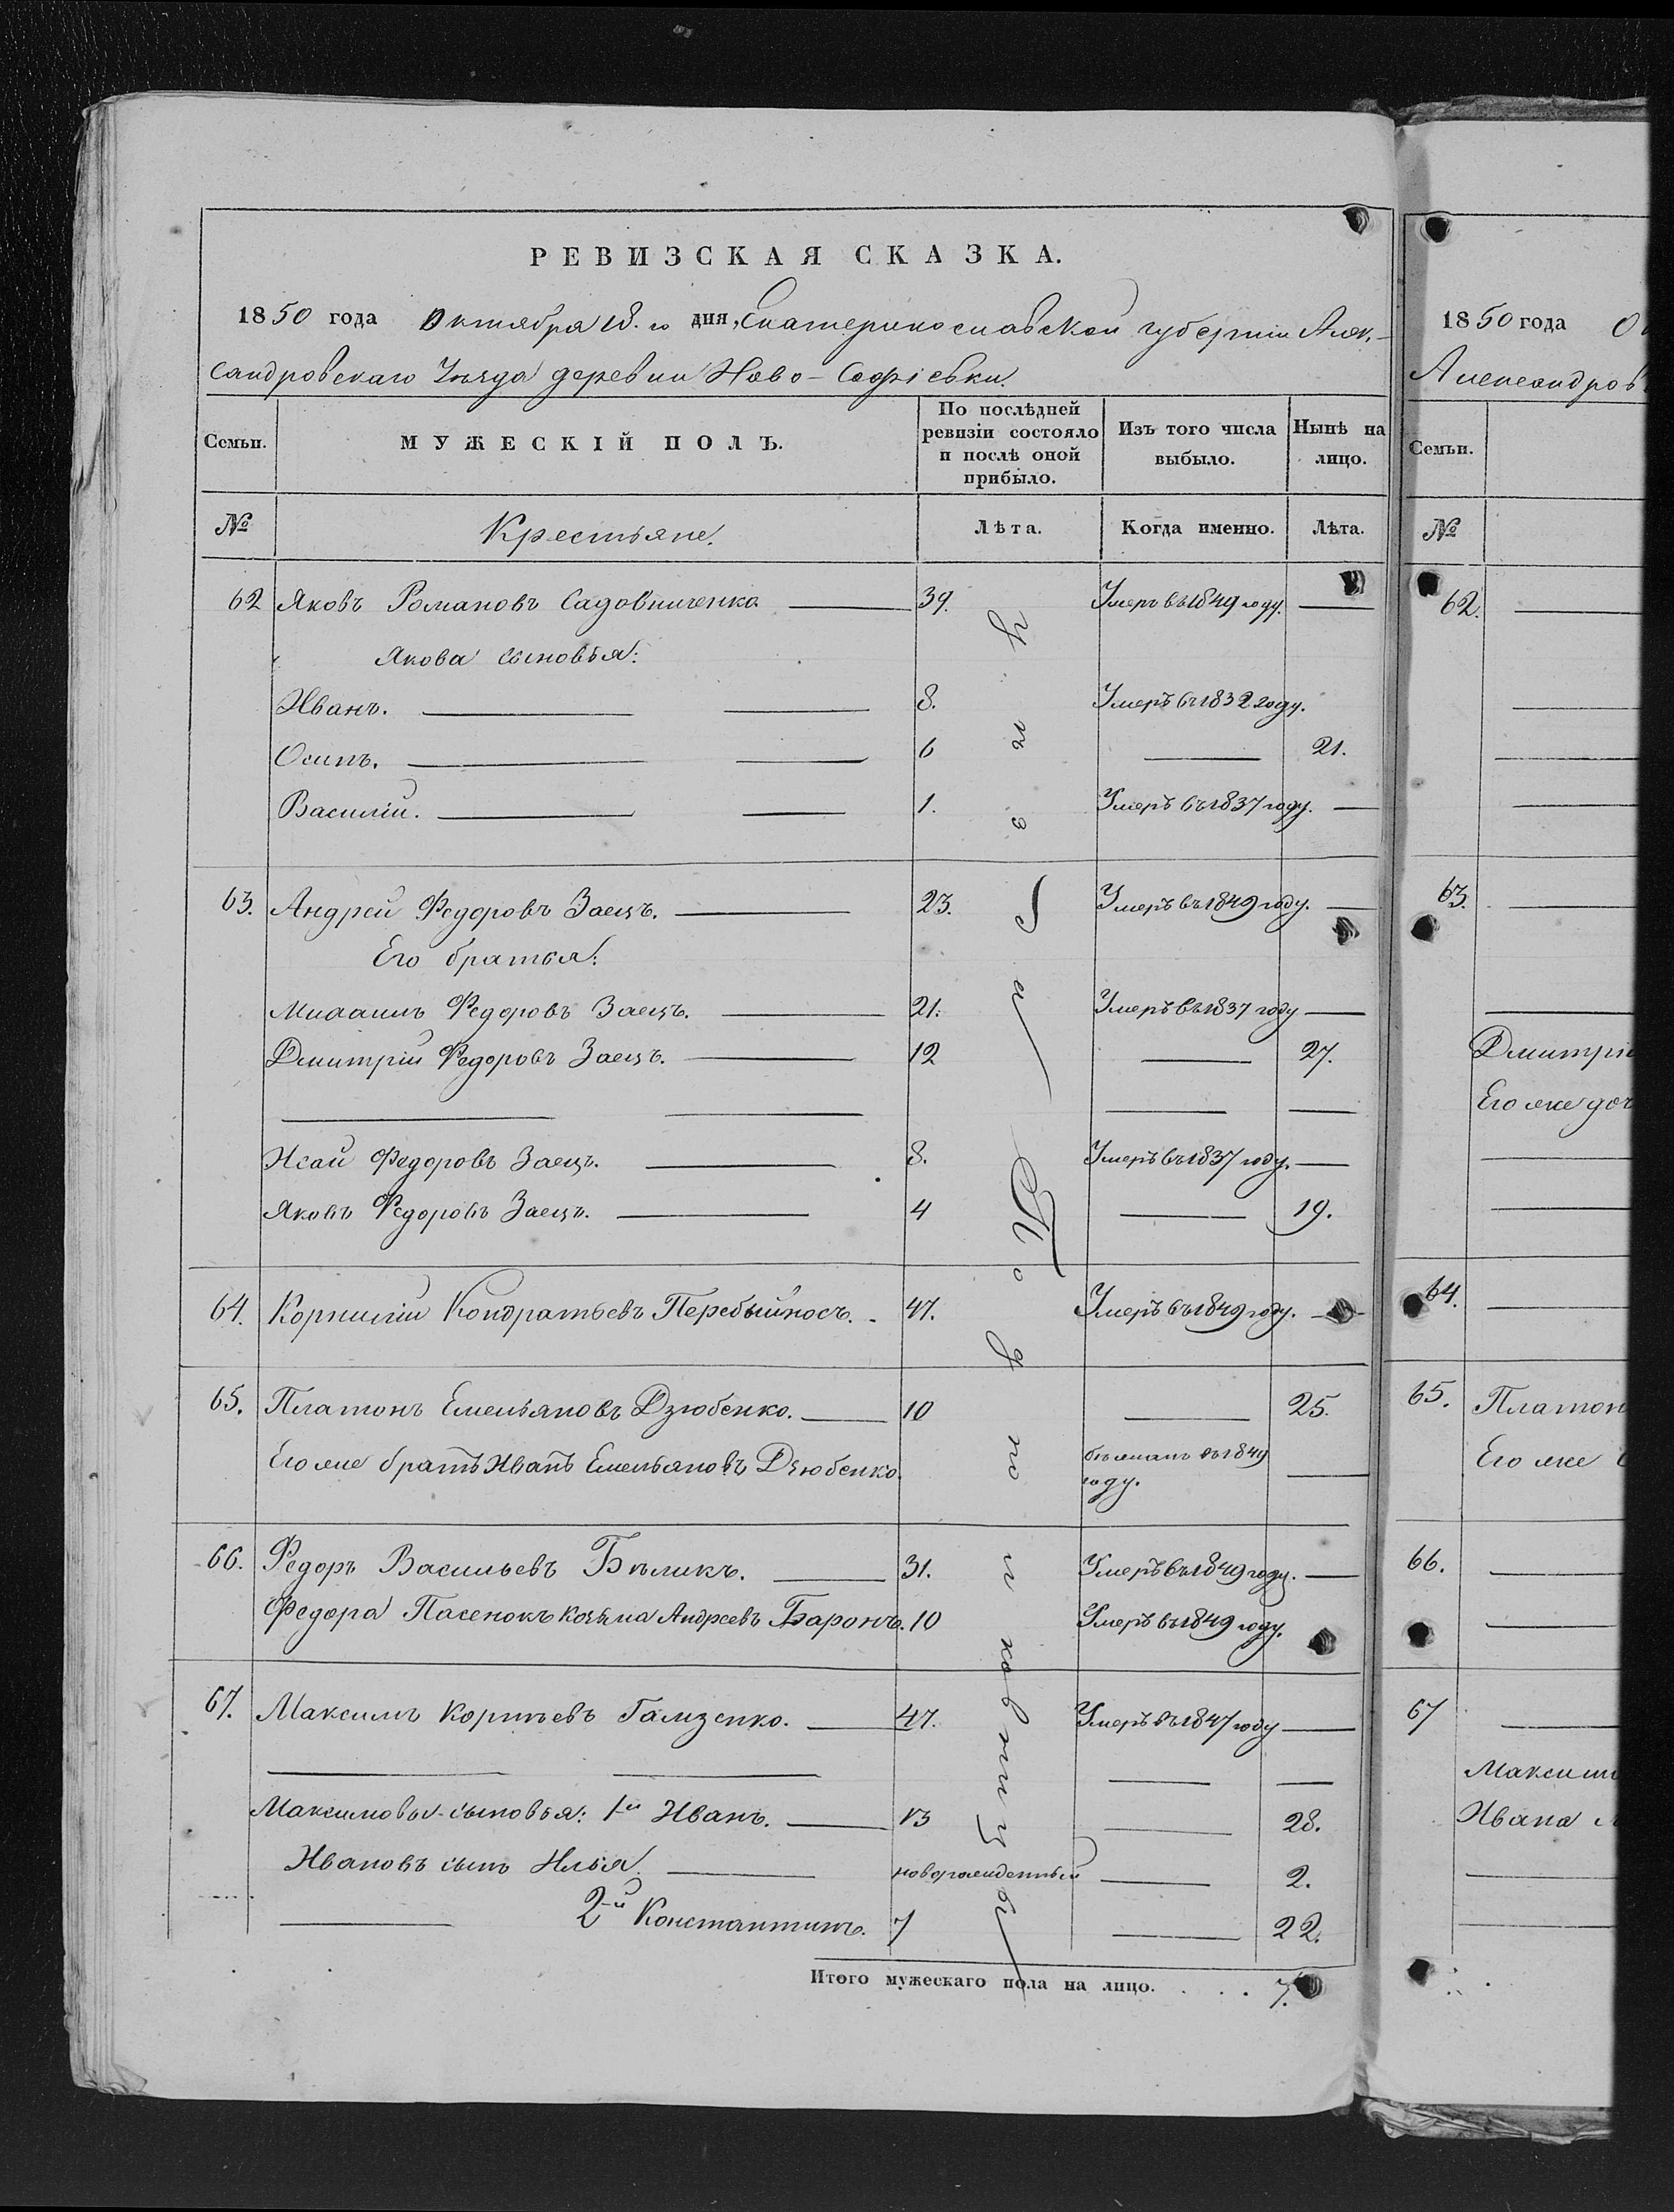 РЕВИЗСКАЯ СКАЗКА.
1850 года Октября 18.го дня, Екатеринославской губерніи Алек-
сандровскаго Уѣзда деревни Ново-Софіевки.
Семьи. МУЖЕСКІЙ ПОЛЪ. По послѣдней ревизіи состояло и послѣ оной прибыло. Изъ того числа выбыло. Нынѣ на лицо.
№ Крестьяне. Лѣта. Когда именно. Лѣта.
62 Яковъ Романовъ Садовниченко 39. Умеръ въ 1849 году.
Якова сыновья:
Иванъ. 8. Умеръ въ 1832 году.
Осипъ. 6 21.
Василій. 1. Умеръ въ 1837 году.
63. Андрей Федоровъ Заецъ. 23. Умеръ въ 1849 году.
Его братья:
Михаилъ Федоровъ Заецъ. 21. Умеръ въ 1837 году
Дмитрій Федоровъ Заецъ. 12 27.
Исай Федоровъ Заецъ. 8. Умеръ въ 1837 году.
Яковъ Федоровъ Заецъ. 4 19.
64. Корнилій Кондратьевъ Перебыйносъ. 47. Умеръ въ 1849 году.
65. Платонъ Емельяновъ Дзюбенко. 10 25.
Его же братъ Иванъ Емельяновъ Дзюбенко. бѣжалъ въ 1849
году.
66. Федоръ Васильевъ Бѣликъ. 31. Умеръ въ 1849 году.
Федора Пасенокъ Козьма Андреевъ Баронъ. 10 Умеръ въ 1849 году.
67. Максимъ Корнѣевъ Гамзенко. 47. Умеръ въ 1847 году
Максимовы сыновья: 1й Иванъ. 13 28.
Ивановъ сынъ Илья. новорожденный 2.
2й Константинъ. 7 22.
Итого мужескаго пола на лицо. . . . 7.
1850 года
Александров
Семьи.
№
62.
63.
Дмитрі
Его же доч
64.
65. Платон
Его же
66.
67
Максим
Ивана